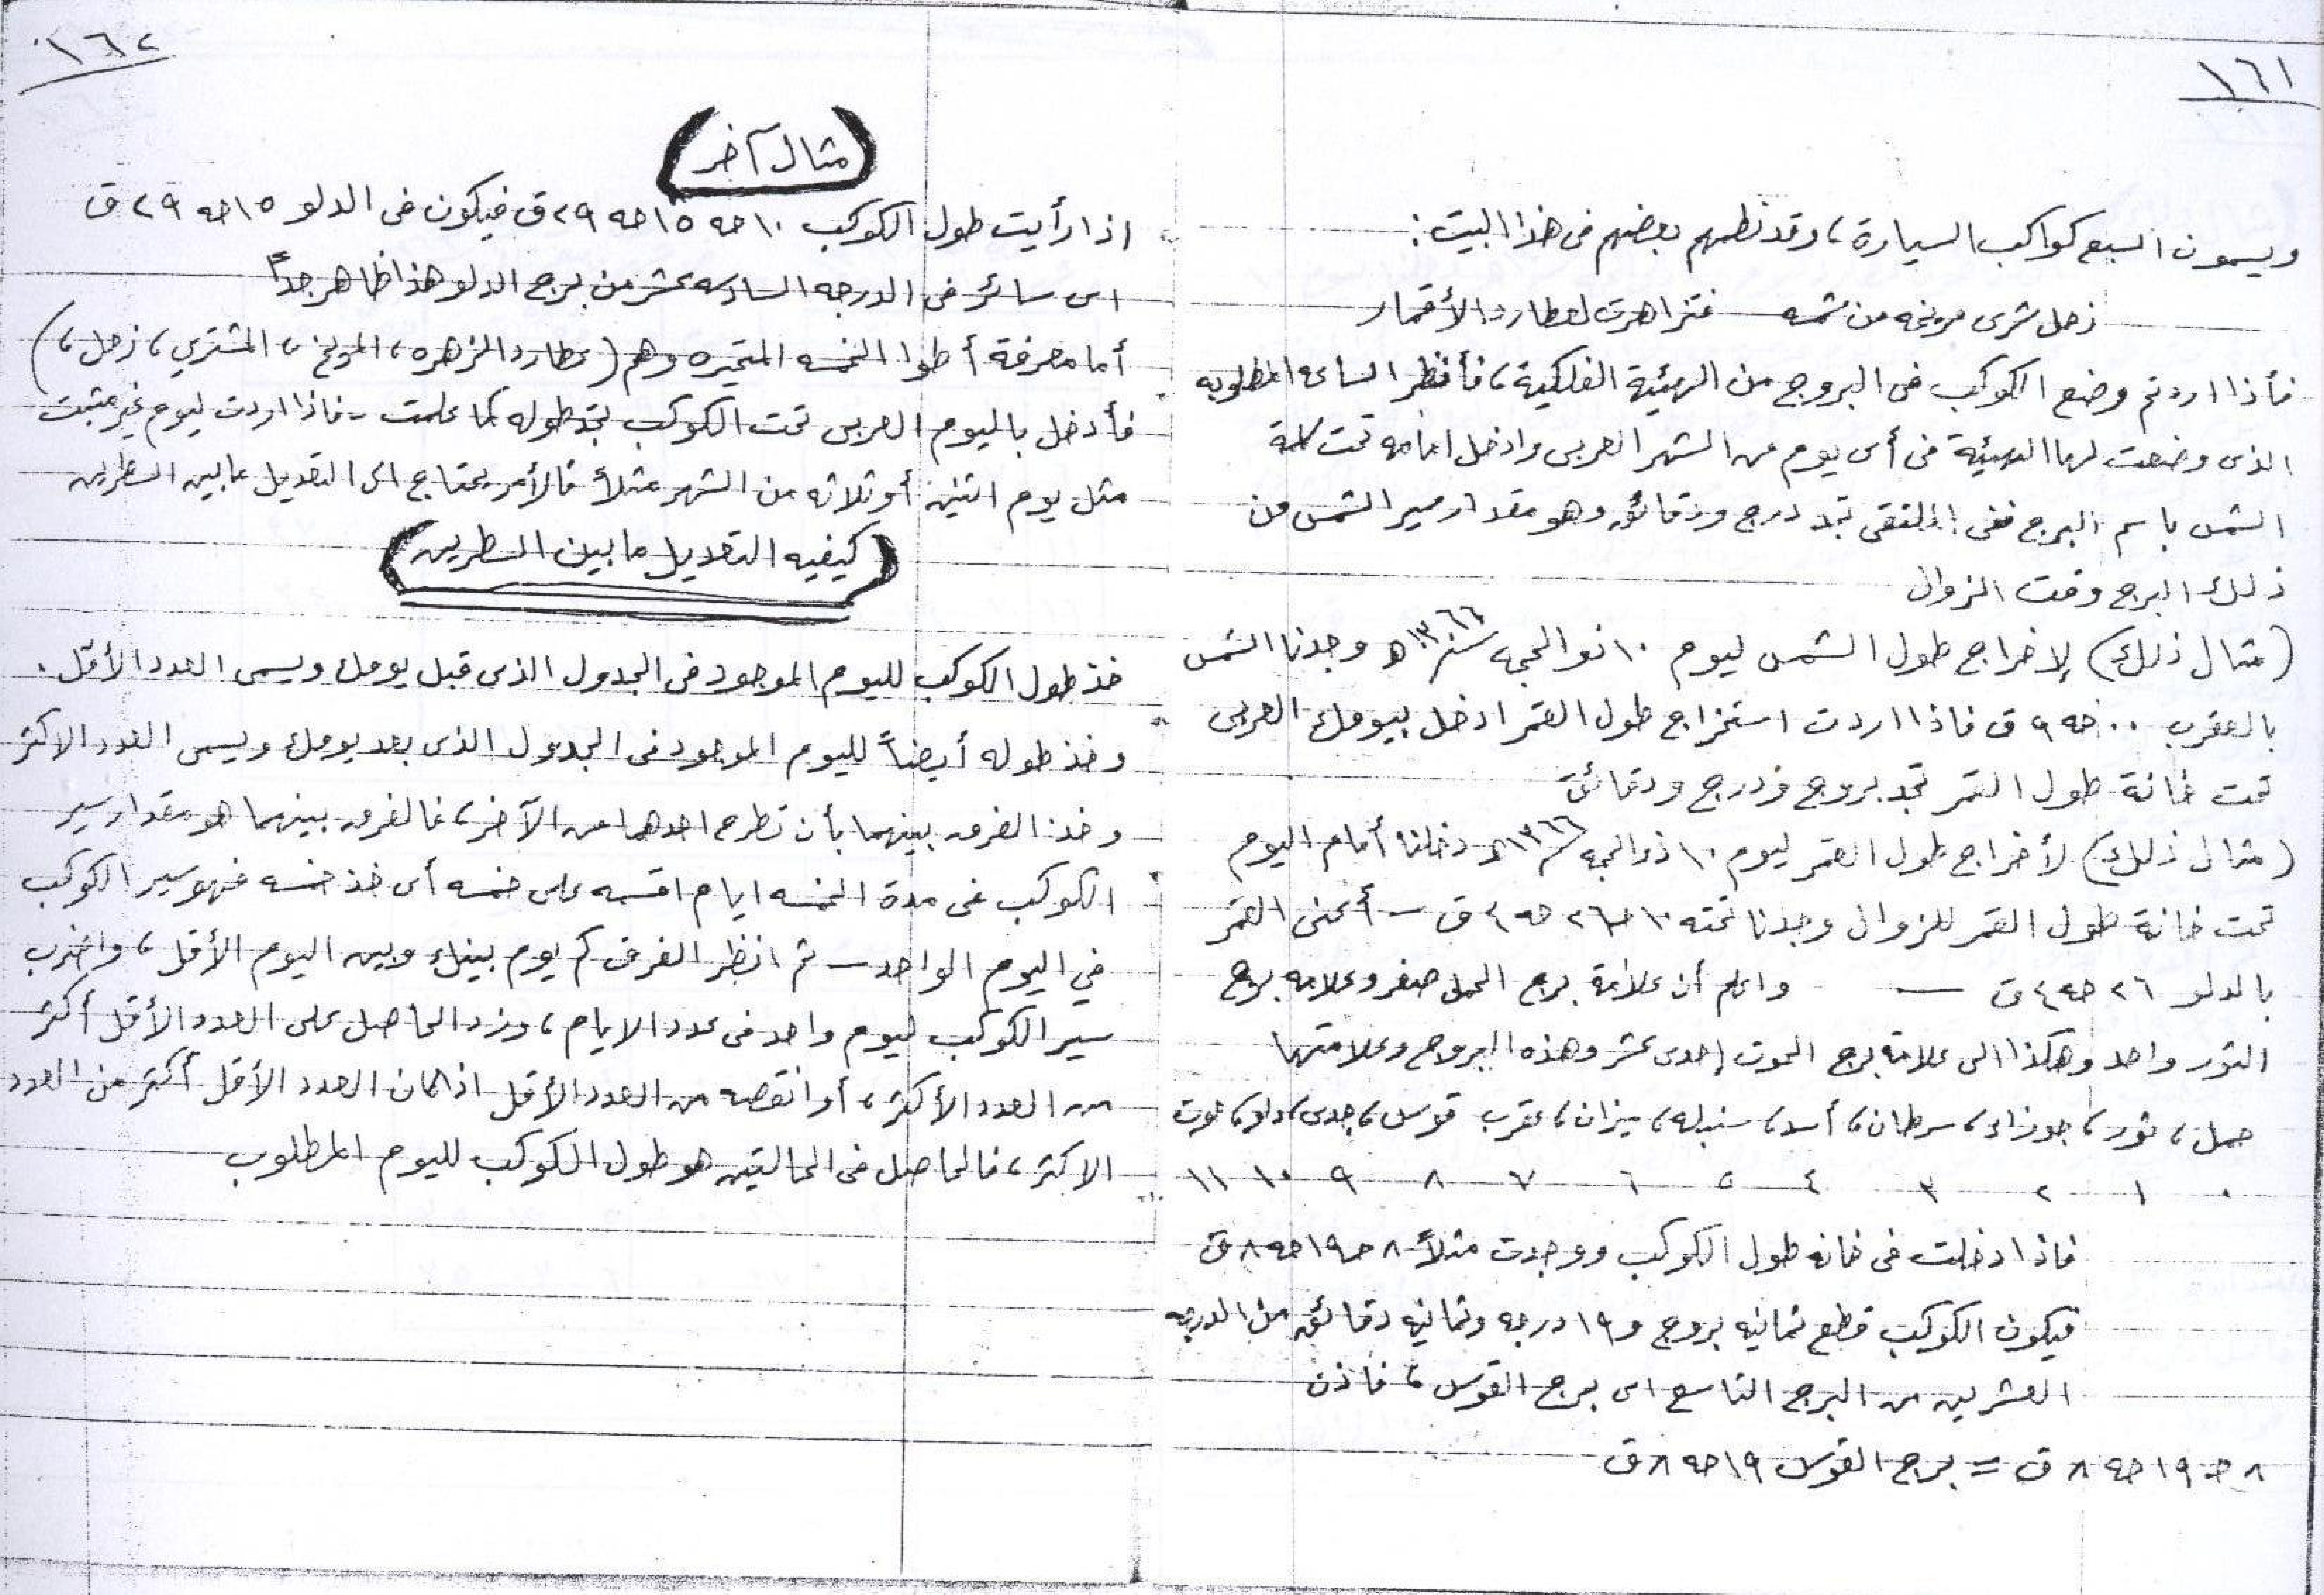 ١٦١
ويسمون السبع كواكب السيارة، وقد نظمهم بعضهم فى هذا البيت:
زحل شرى مريخه من شمسه فتزاهرت لعطارد الأقمار
فأذا اردتم وضع الكوكب فى البروج من الهيئية الفلكية، فأنظر الساعه المطلوبه
الذى وضعت لها الهيئية فى أى يوم من الشهر العربى وادخل امامه تحت كلمة
الشمس باسم البرج ففى الملتقى تجد درج ودقائق وهو مقدار مسير الشمس من
ذلك البرج وقت الزوال
(مثال ذلك) لإخراج طول الشمس ليوم ١٠ ذو الحجه سنة ١٣٦٦ ه وجدنا الشمس
بالعقرب ٠٠ حه ٩ ق فاذا اردت استخراج طول القمر ادخل بيومك العربى
تحت خانة طول القمر تجد بروج ودرج ودقائق
(مثال ذلك) لأخراج طول القمر ليوم ١٠ ذو الحجه سنة ١٣٦٦ ه دخلنا أمام اليوم
تحت خانة طول القمر للزوال وجدنا تحته ١٠ حـ ٢٦ حه ٤ ق – أعنى القمر
بالدلو ٢٦ حه ٤ ق — واعلم أن علامة برج الحمل صفر وعلامه برج
الثور واحد وهكذا الى علامة برج الحوت إحدى عشر وهذه البروج وعلامتها
حمل، ثور، جوزاء، سرطان، أسد، سنبله، ميزان، عقرب قوس، جدى، دلو، حوت
٠ ١ ٢ ٣ ٤ ٥ ٦ ٧ ٨ ٩ ١٠ ١١
فاذا دخلت فى خانه طول الكوكب ووجدت مثلاً ٨ حـ ١٩ حه ٨ ق
فيكون الكوكب قطع ثمانيه بروج و ١٩ درجه وثمانيه دقائق من الدرجه
العشرين من البرج التاسع اى برج القوس، فاذن
٨ حـ ١٩ حه ٨ ق = برج القوس ١٩ حه ٨ ق
١٦٢
(مثال آخر)
اذا رأيت طول الكوكب ١٠ حه ١٥ حه ٢٩ ق فيكون فى الدلو ١٥ حه ٢٩ ق
اى سائر فى الدرجه السادسه عشر من برج الدلو هذا ظاهر جداً
أما معرفة أطوا الخمسه المتحيره وهم (عطارد الزهره، المريخ، المشترى، زحل،)
فأدخل باليوم العربى تحت الكوكب تجد طوله كما علمت - فاذا اردت ليوم غير مثبت
مثل يوم اثنين أو ثلاثه من الشهر مثلاً فالأمر يحتاج الى التعديل ما بين السطرين
(كيفيه التعديل ما بين السطرين)
خذ طول الكوكب لليوم الموجود فى الجدول الذى قبل يومك ويسمى العدد الأقل.
وخذ طوله أيضاً لليوم الموجود فى الجدول الذى بعد يومك ويسمى العدد الاكثر
وخذ الفرق بينهما بأن تطرح احدهما من الآخر، فالفرق بينهما هو مقدار سير
الكوكب فى مدة الخمسه ايام اقسمه على خمسه أى خذ خمسه فهو سير الكوكب
في اليوم الواحد – ثم انظر الفرق كم يوم بينك وبين اليوم الأقل، واضرب
سير الكوكب ليوم واحد فى عدد الايام، وزد الحاصل على العدد الأقل أكثر
من العدد الأكثر، أو انقصه من العدد الأقل اذا كان العدد الأقل أكثر من العدد
الاكثر، فالحاصل فى الحالتين هو طول الكوكب لليوم المطلوب